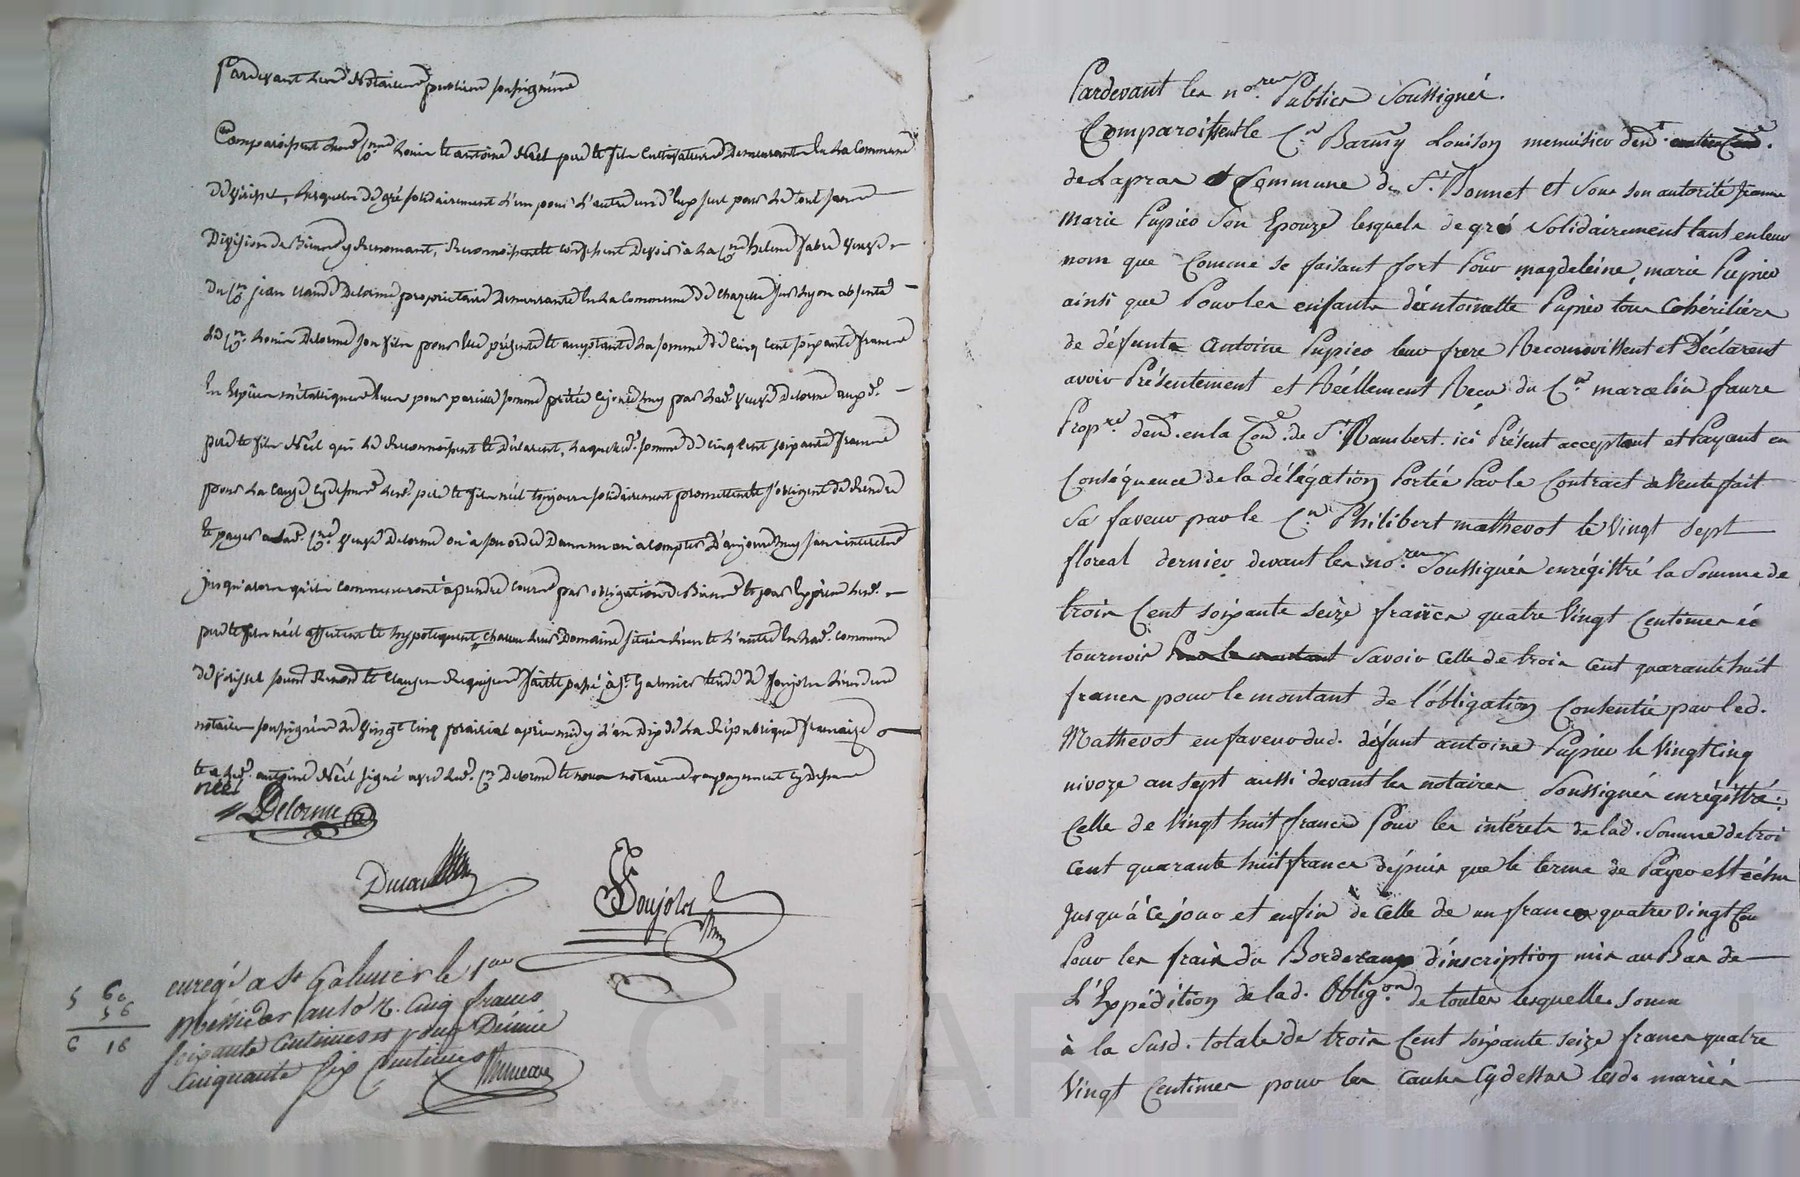 Pardevant les Notaires publics soussignés
Comparoissent les Cens Louis et antoine Néel pere et fils cultivateurs demeurants en la Commune
de Virisel, lesquels de gré solidairement l'un pour l'autre un d'eux seul pour le tout sans
Division de biens y renonçant, reconnoissent et confessent Devoir à la Cne helene fabre veuve
du Cn jean claude Delorme propriétaire Demeurante en la Commune de Chazelle sur Lyon absente
le Cn Louis Delorme son fils pour elle présent et acceptant la somme de Cinq Cent soixante francs
en Espèces métalliques pour pareille somme prêtée ce jourd'huy par lad. veuve Delorme auxd.
pere et fils Néel qui le reconnoissent et déclarent, laquelle somme de cinq cent soixante francs
pour la cause cydessus lesd. pere et fils néel toujours solidairement promettent et s'obligent de Rendre
et payer a lad. Cne veuve Delorme ou à son ordre Dans un an à compter D'aujourd'huy sans interets
jusqu'alors qu'ils commenceront à prendre cours par obligation de Biens et pour exprès lesd.
pere et fils néel affectent et hypotequent chacun leurs Domaines situés l'un et l'autre en lad. commune
de Virisel soumis Renoncé et clauses Requises fait et passé à St. Galmier étude de Joujolas l'un des
notaires soussignés le vingt cinq prairial après midy l'an Dix de la République française
et a led. antoine Néel signé avec led. Cn Delorme et nous notaires
néel
Delorme
Joujolas
enregé a St Galmier le 1er
Messidor an 10 R. Cinq francs
soixante Centimes et pour Décime
Cinquante Six Centimes
5 60
56
6 16
Pardevant les nores. Publics Soussignés.
Comparoissent le Cn Barmy Louison menuisier demt.
de Lapras Commune de St. Bonnet et Sous son autorité Jeanne
Marie Pupier Son Epouze lesquels de gré Solidairement tant en leur
nom que Comme se faisant fort Pour magdeleine, marie Pupier
ainsi que Pour les enfants d'antoinette Pupier tous Cohéritiers
de défunt Antoine Pupier leur frere Reconnoissent et Déclarent
avoir Présentement et Réellement Recu du Cn. marcelin faure
Propre. demt. en la Cone. de St. Rambert. ici Présent acceptant et Payant en
Conséquence de la délégation Portée Par le Contract de Vente fait
Sa faveur par le Cn Philibert mathevot le Vingt Sept
floreal dernier devant les nores. Soussignés enrégittré la Somme de
trois Cent soixante seize francs quatre Vingt Centimes
tournois Pour le montant Savoir Celle de trois cent quarante huit
francs pour le montant de l'obligation Consentie par led.
Mathevot en faveur dud. défunt antoine Pupier le Vingt Cinq
nivoze an sept aussi devant les notaires Soussignés enrégittré.
Celle de Vingt huit francs Pour les intérets de lad. Somme de troi
Cent quarante huit francs dépuis que le terme de Payer est échu
Jusqu'à ce jour et enfin de Celle de un franc quatre Vingt Cen
Pour les frais du Bordereau d'inscription mis au Bas de
L'Expédition de lad. Obligon. de toutes lesquelles Somm
à la Susd. totale de trois Cent soixante seize francs quatre
Vingt Centimes pour les Causes Cydessus lesd. mariés